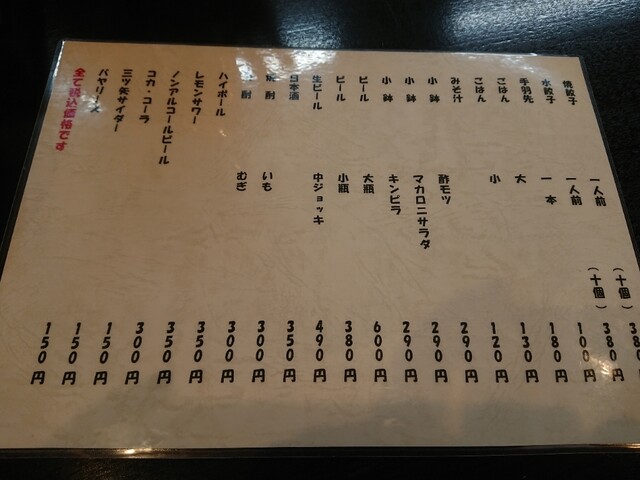 焼餃子 一人前 (十個) 380
水餃子 一人前 (十個) 380円
手羽先 一本 100円
ごはん 大 180円
ごはん 小 130円
みそ汁 120円
小鉢 酢モツ 290円
小鉢 マカロニサラダ 290円
小鉢 キンピラ 290円
ビール 大瓶 600円
ビール 小瓶 380円
生ビール 中ジョッキ 490円
日本酒 350円
焼酎 いも 300円
酎 むぎ 300円
ハイボール 350円
レモンサワー 350円
ノンアルコールビール 300円
コカ・コーラ 150円
三ツ矢サイダー 150円
バヤリース 150円
全て税込価格です